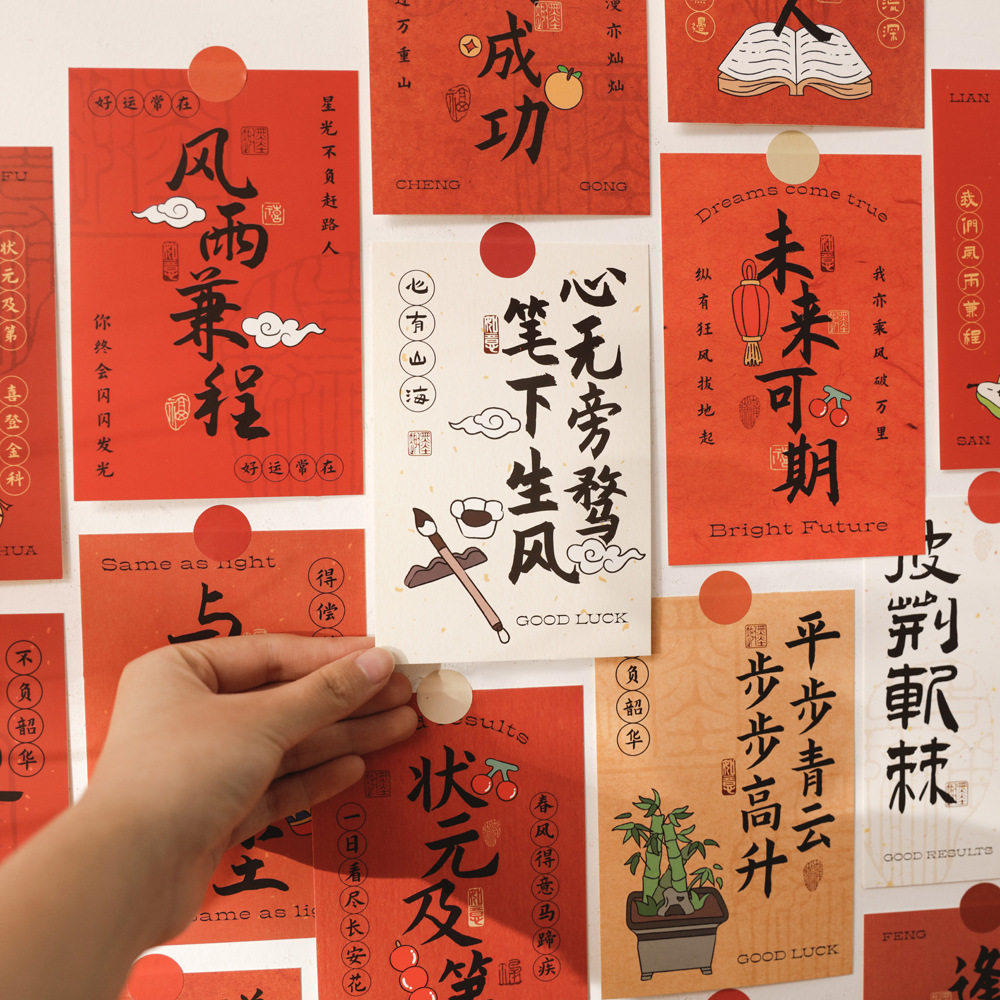 FU
状元及第
喜登金科
HUA
好运常在
星光不负赶路人
风雨兼程
你终会闪闪发光
好运常在
万重山
成功
漫亦灿灿
CHENG GONG
人
Dreams come true
未来可期
纵有狂风拔地起
我亦乘风破万里
Bright Future
LIAN
我们风雨兼程
SAN
心有山海
心无旁骛
笔下生风
GOOD LUCK
Same as light
与
得偿
Same as li
不负韶华
Results
状元及第
一日看尽长安花
春风得意马蹄疾
负韶华
平步青云
步步高升
GOOD LUCK
披荆斩棘
GOOD RESULTS
FENG
逢